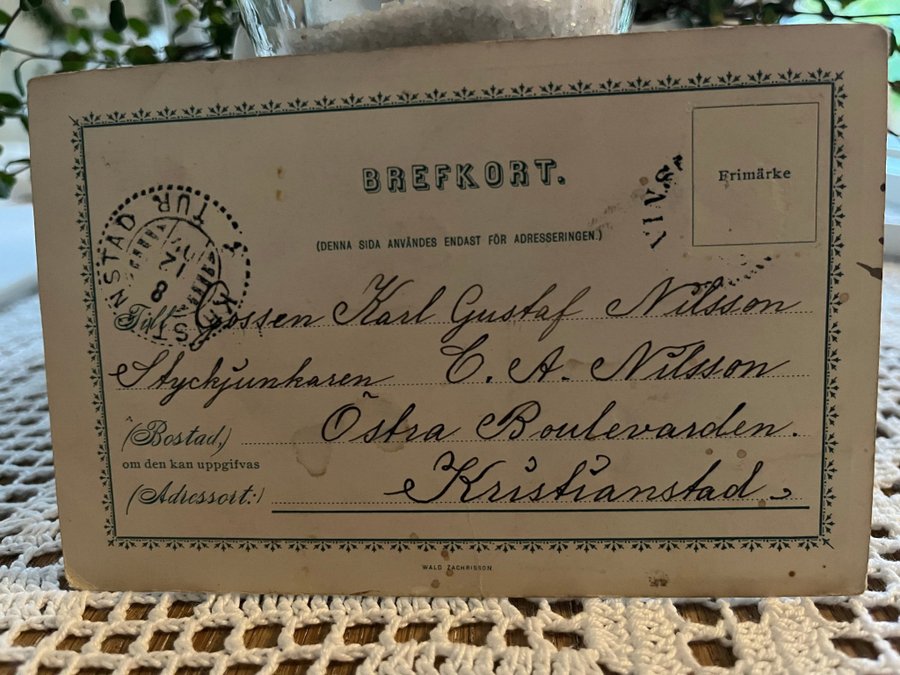 BREFKORT.
Frimärke
(DENNA SIDA ANVÄNDES ENDAST FÖR ADRESSERINGEN.)
KRISTIANSTAD TUR
Till Gossen Karl Gustaf Nilsson
Styckjunkaren E. A. Nilsson
(Bostad,) Östra Boulevarden.
om den kan uppgifvas
(Adressort:) Kristianstad
WALD. ZACHRISSON